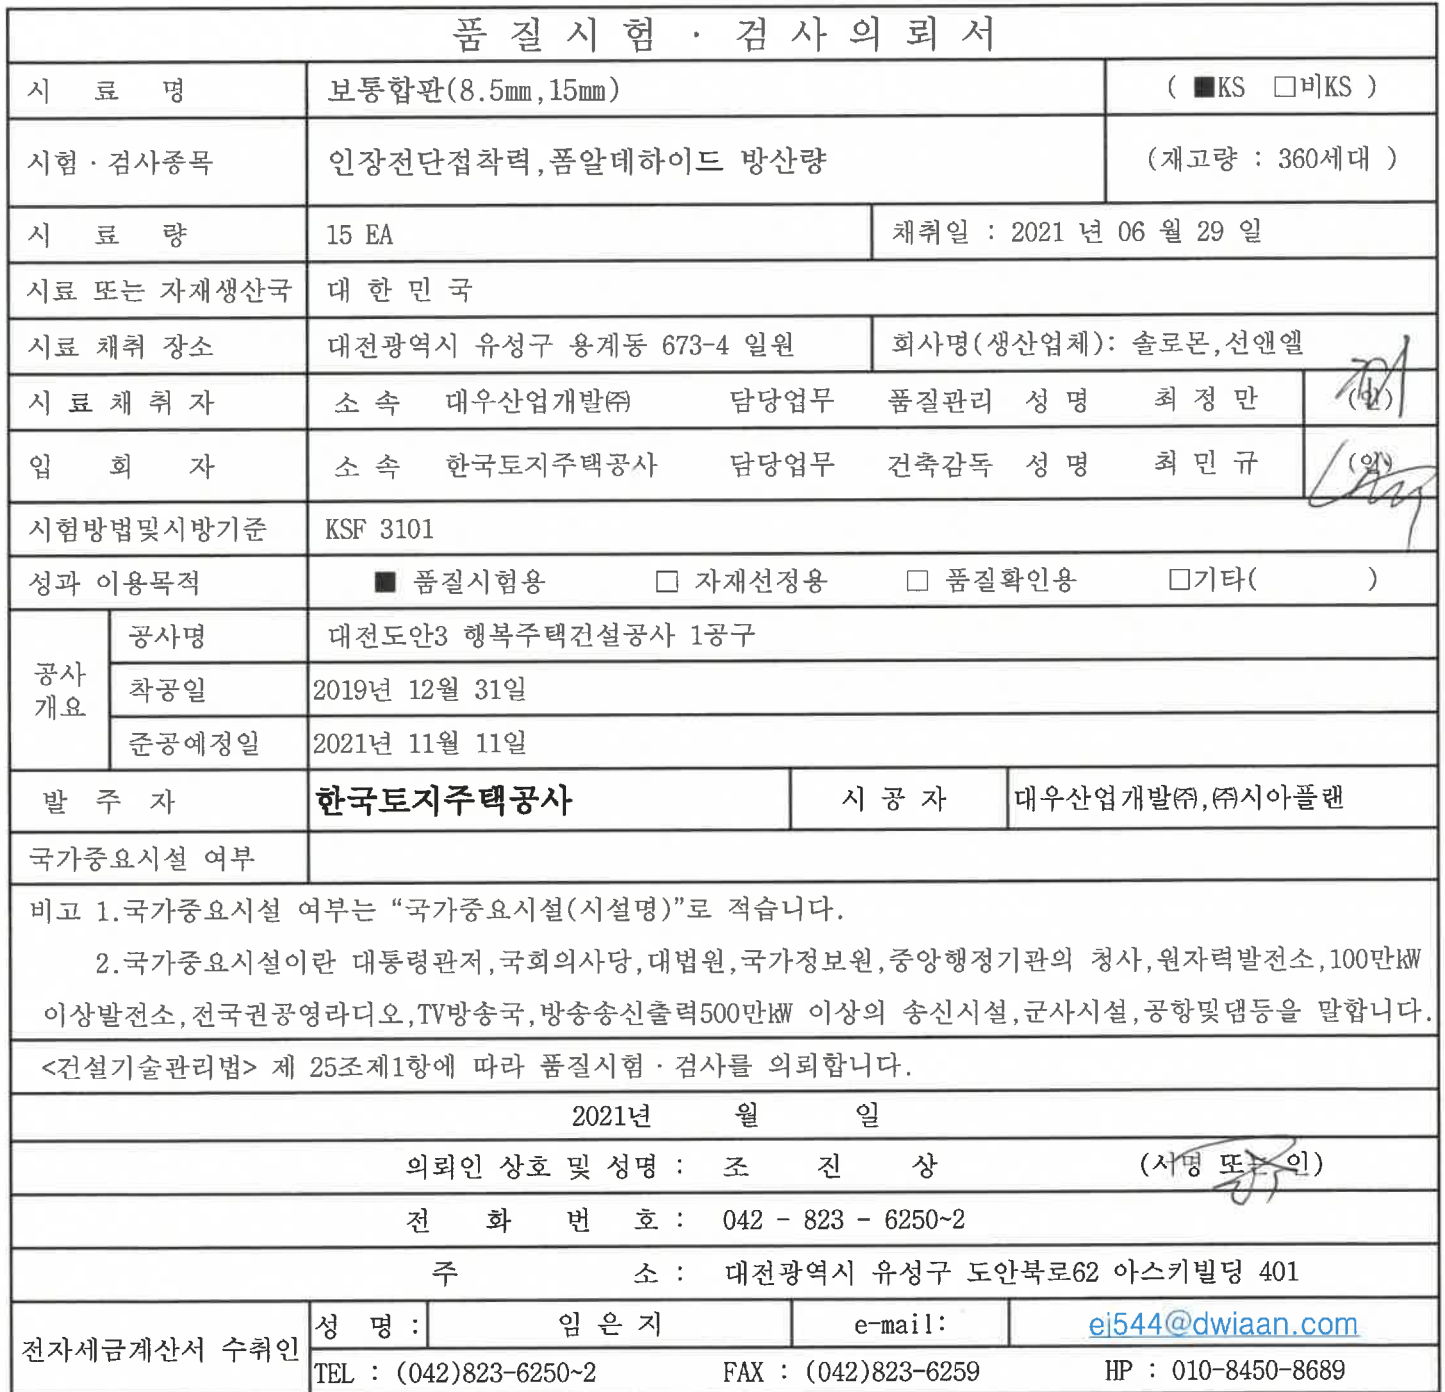 품 질 시 험 · 검 사 의 뢰 서
시 료 명 보통합판(8.5㎜,15㎜) ( ■KS □비KS )
시험 · 검사종목 인장전단접착력,폼알데하이드 방산량 (재고량 : 360세대 )
시 료 량 15 EA 채취일 : 2021 년 06 월 29 일
시료 또는 자재생산국 대 한 민 국
시료 채취 장소 대전광역시 유성구 용계동 673-4 일원 회사명(생산업체): 솔로몬,선앤엘
시 료 채 취 자 소 속 대우산업개발㈜ 담당업무 품질관리 성 명 최 정 만 (인)
입 회 자 소 속 한국토지주택공사 담당업무 건축감독 성 명 최 민 규 (인)
시험방법및시방기준 KSF 3101
성과 이용목적 ■ 품질시험용 □ 자재선정용 □ 품질확인용 □기타( )
공사 개요
공사명 대전도안3 행복주택건설공사 1공구
착공일 2019년 12월 31일
준공예정일 2021년 11월 11일
발 주 자 한국토지주택공사 시 공 자 대우산업개발㈜,㈜시아플랜
국가중요시설 여부
비고 1.국가중요시설 여부는 “국가중요시설(시설명)”로 적습니다.
2.국가중요시설이란 대통령관저,국회의사당,대법원,국가정보원,중앙행정기관의 청사,원자력발전소,100만㎾
이상발전소,전국권공영라디오,TV방송국,방송송신출력500만㎾ 이상의 송신시설,군사시설,공항및댐등을 말합니다.
<건설기술관리법> 제 25조제1항에 따라 품질시험 · 검사를 의뢰합니다.
2021년 월 일
의뢰인 상호 및 성명 : 조 진 상 (서명 또는 인)
전 화 번 호 : 042 - 823 - 6250~2
주 소 : 대전광역시 유성구 도안북로62 아스키빌딩 401
전자세금계산서 수취인 성 명 : 임 은 지 e-mail: ej544@dwiaan.com
TEL : (042)823-6250~2 FAX : (042)823-6259 HP : 010-8450-8689